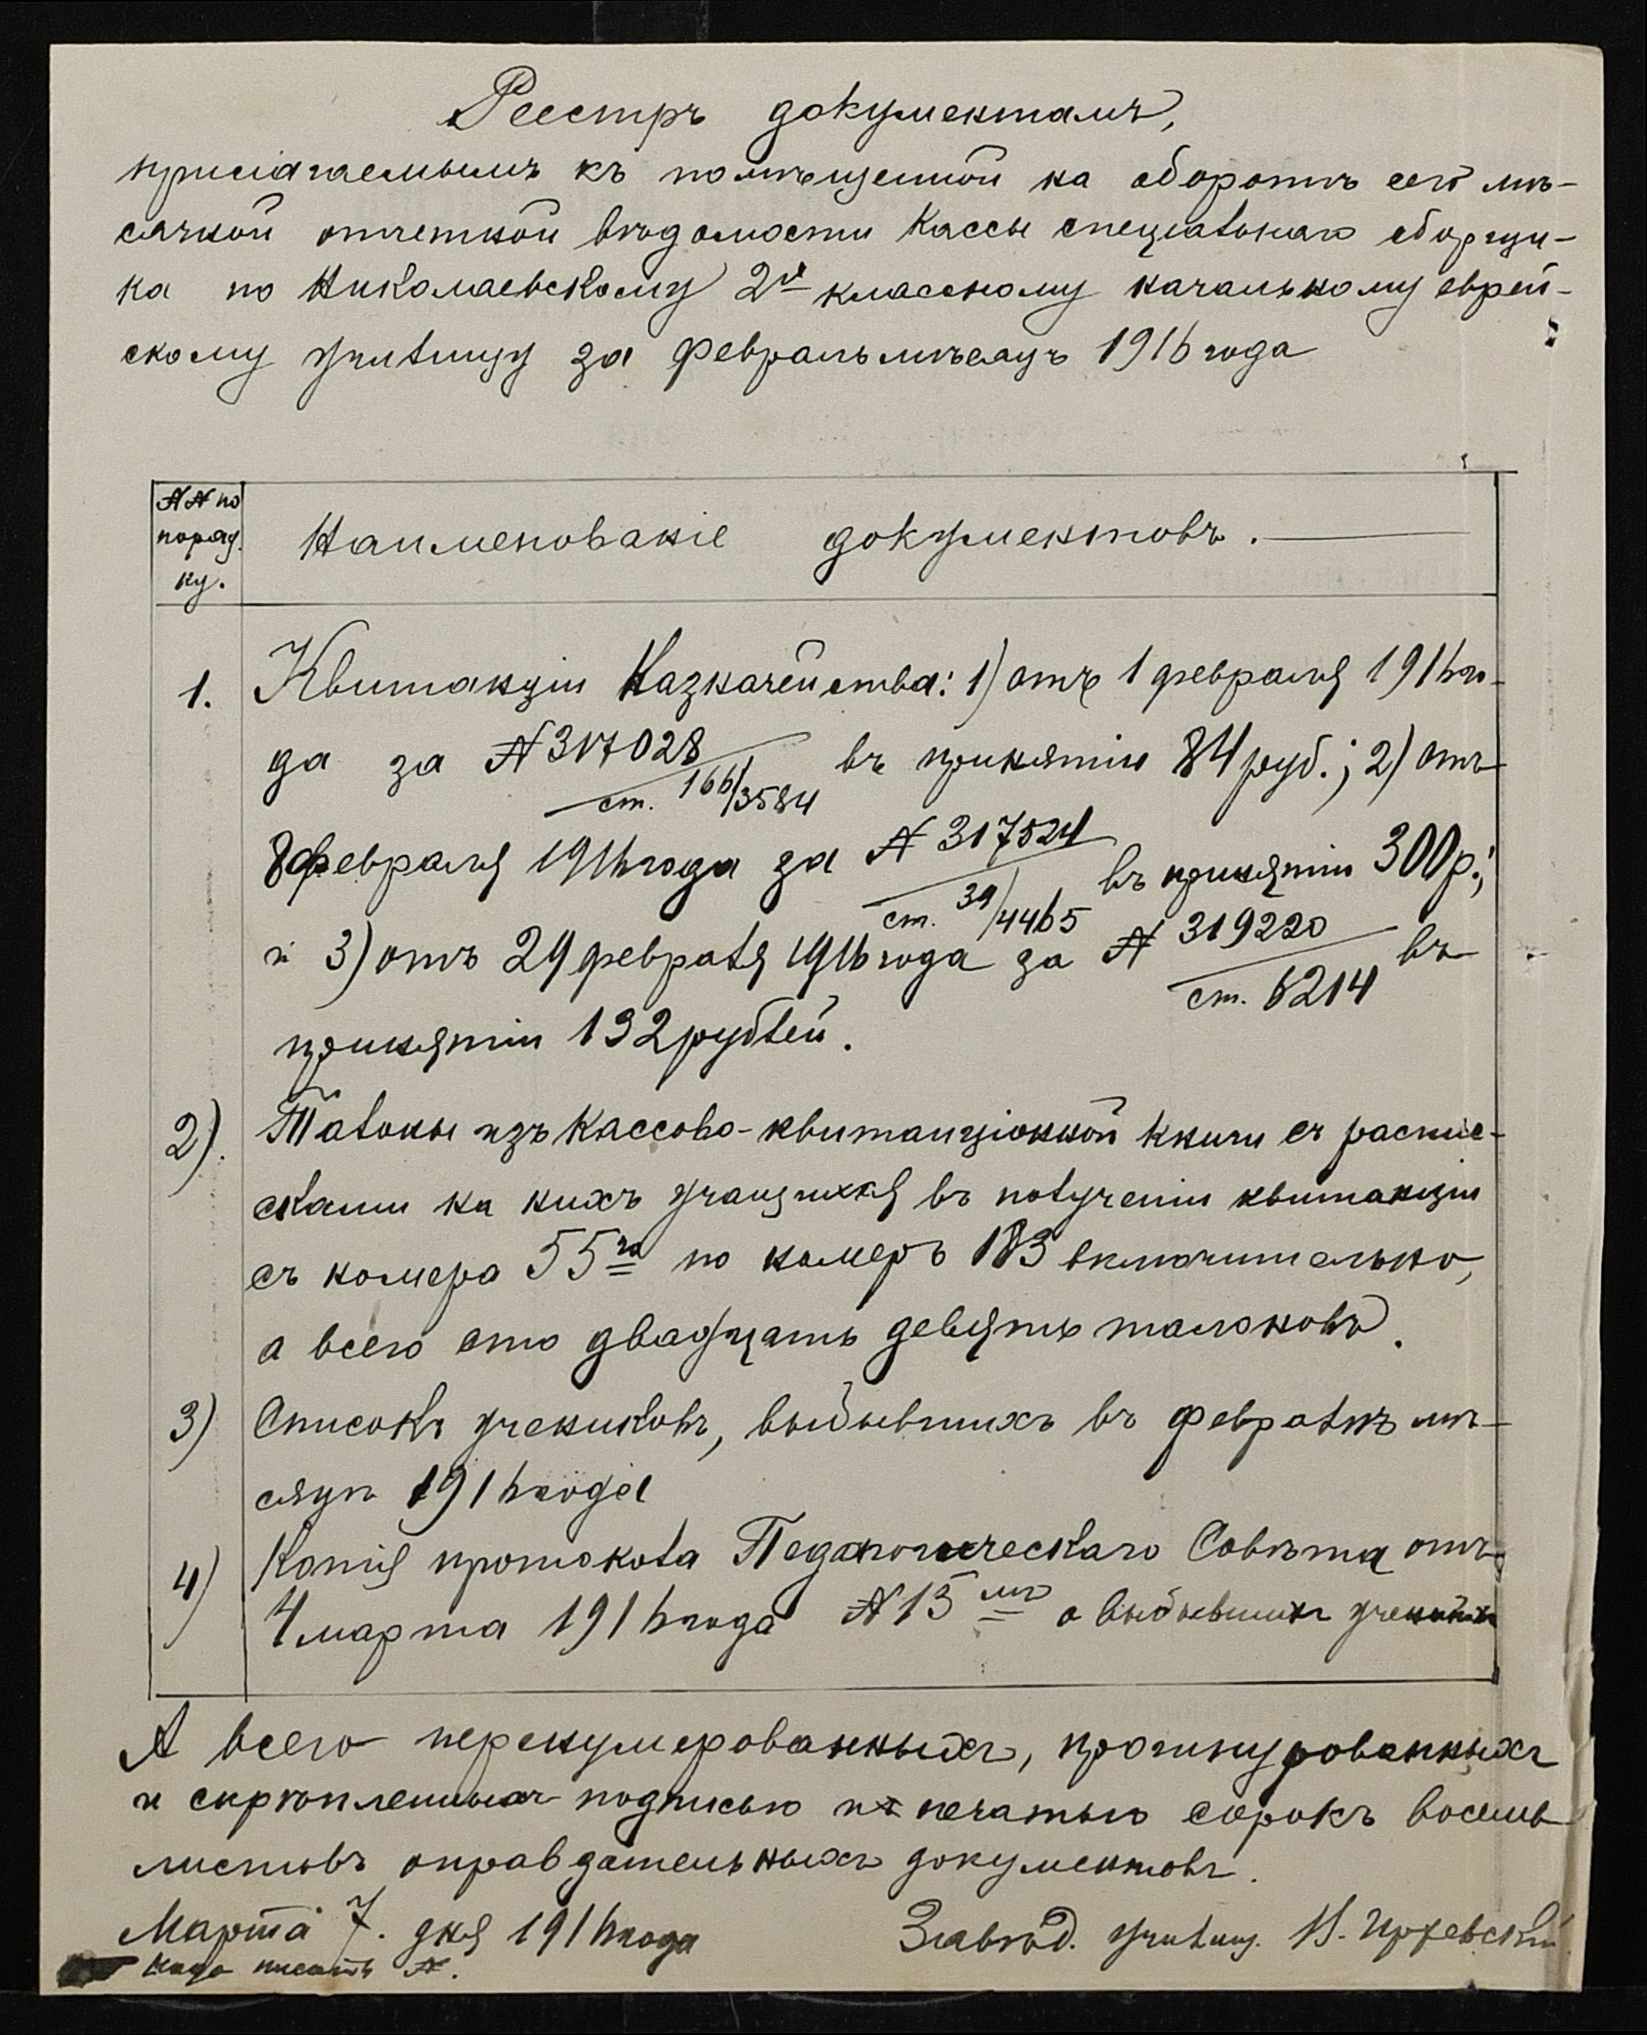 Реестръ документамъ,
прилагаемымъ къ помѣщенной на оборотѣ сего мѣ-
сячной отчетной вѣдомости кассы спеціальнаго сборщи-
ка по Николаевскому 2х классному начальному еврей-
скому училищу за февраль мѣсяцъ 1916 года
№№ по
поряд.
ку.
Наименованіе документовъ.
1. Квитанціи Казначейства: 1) отъ 1 февраля 1916 го-
да за № 317028 / ст. 166/3584 въ принятіи 84 руб.; 2) отъ
8 февраля 1916 года за № 317524 / ст. 39/4465 въ принятіи 300 р.;
и 3) отъ 29 февраля 1916 года за № 319220 / ст. 6214 въ
принятіи 132 рублей.
2). Талоны изъ кассово-квитанціонной книги съ распис-
ками на нихъ учащихся въ полученіи квитанціи
съ номера 55го по номеръ 183 включительно,
а всего сто двадцать девять талоновъ.
3) Списокъ учениковъ, выбывшихъ въ февралѣ мѣ-
сяцѣ 1916 года
4) Копія протокола Педагогическаго Совѣта отъ
4 марта 1916 года № 15мъ о выбывшихъ
А всего перенумерованныхъ, прошнурованныхъ
и скрѣпленныхъ подписью и печатью сорокъ восемь
листовъ оправдательныхъ документовъ.
Марта 7. дня 1916 года Завѣд. училищ.
писать №.